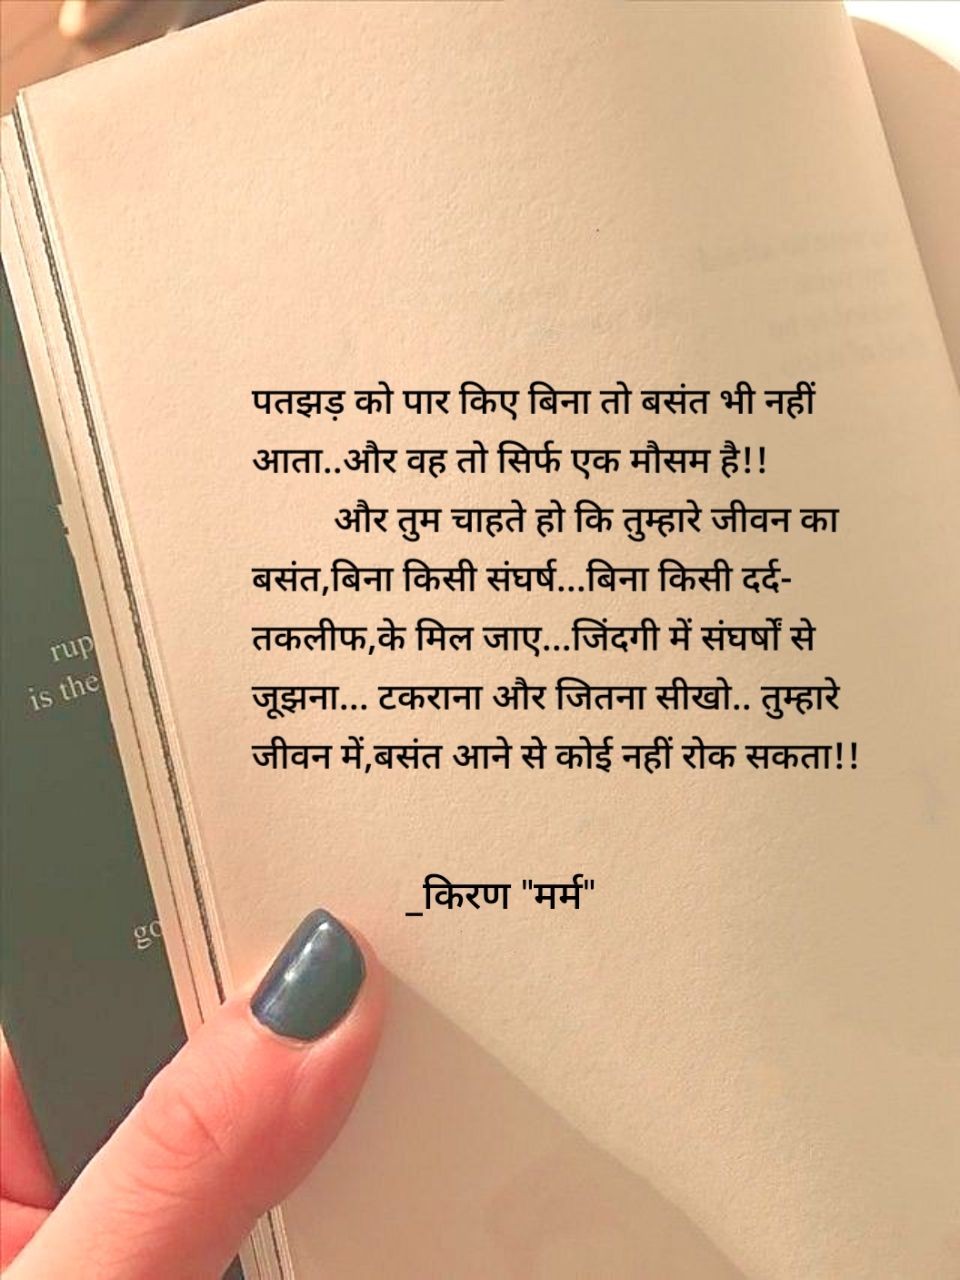 पतझड़ को पार किए बिना तो बसंत भी नहीं
आता..और वह तो सिर्फ एक मौसम है!!
और तुम चाहते हो कि तुम्हारे जीवन का
बसंत,बिना किसी संघर्ष...बिना किसी दर्द-
तकलीफ,के मिल जाए...जिंदगी में संघर्षों से
जूझना... टकराना और जितना सीखो.. तुम्हारे
जीवन में,बसंत आने से कोई नहीं रोक सकता!!
_किरण "मर्म"
rup
is the
go